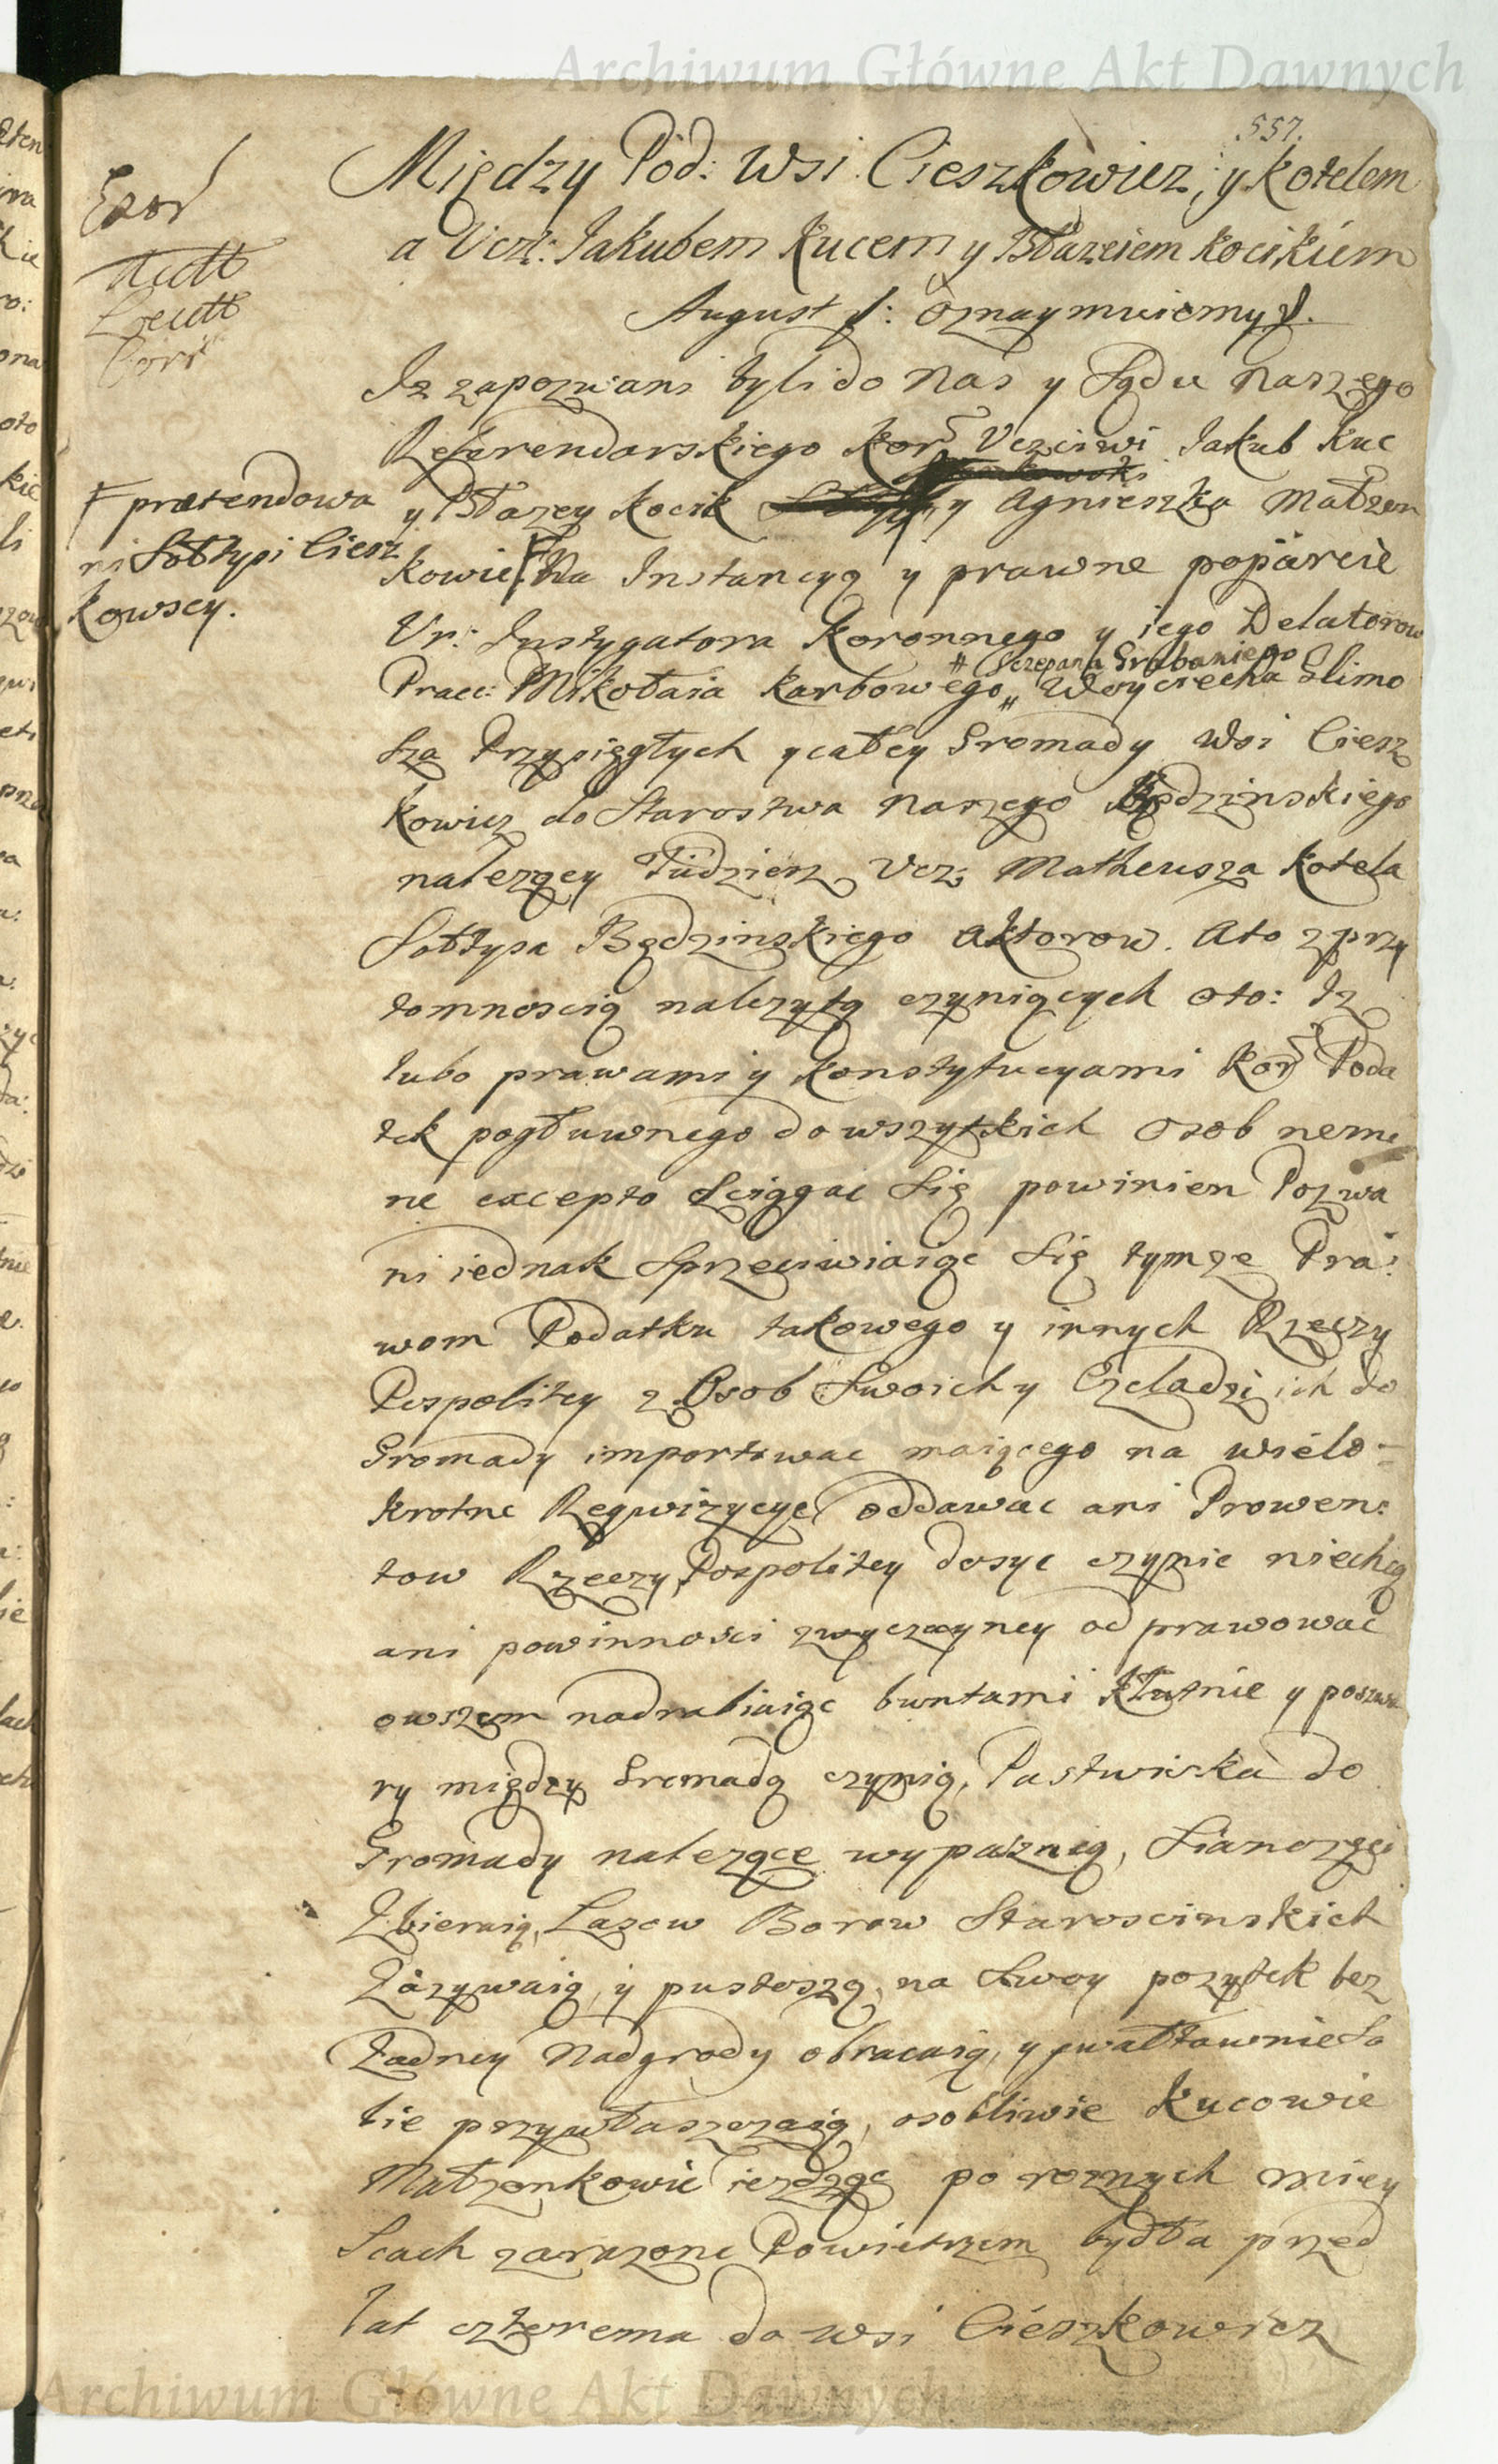 Archiwum Główne Akt Dawnych
557.
Między Pod: Wsi Cieszkowicz, y Kotelem
a Ucz: Jakubem Kucem y Błazeiem Kocikiem
August &: Oznaymuiemy &.
Iz zapozwani byli do Nas y Sądu Naszego
Referendarskiego Kor: Uczciwi Jakub Kuc
y Błazey Kocik y Agnieszka Małzon
kowie Na Instancyą y prawne poparcie
Ur: Instygatora Koronnego y iego Delatorow
# Sczepana Grabaniego
Prac: Mikołaia Karbowego # Woyciecha Slimo
sza Przysięgłych y całey Gromady Wsi Ciesz
kowicz do Starostwa Naszego Będzinskiego
nalezącey Tudziesz Ucz: Matheusza Kotela
Sołtysa Będzinskiego Aktorow. A to z przy
tomnoscią nalezytą czyniących oto: Iz
lubo prawami y Konstytucyami Kor: Poda
tek pogłuwnego do wszytkich Osob nemi
ne excepto sciągac się powinien Pozwa
ni iednak sprzeciwiaiąc się tymze Pra:
wom Podatku takowego y innych Rzeczy
Pospolitey z Osob swoich y Czeladzi ich do
Gromady importowac maiącego na wielo-
krotne Reqwizycye oddawac ani Prowen:
tow Rzeczy Pospolitey dosyc czynic niechcą
ani powinnosci zwyczayney odprawowac
owszem nadrabiaiąc buntami Kłutnie y poswa
ry między Gromadą czynią, Pastwiska do
Gromady nalezące wypaszaią, Sianozęci
Zbieraią, Lazow Borow Staroscinskich
Zazywaią, y pustoszą, na swoy pozytek bez
Zadney Nadgrody obracaią, y gwałtownie So
bie przywłaszczaią, osobliwie Kucowie
Małzonkowie iezdząc po roznych miey
scach zarazone Powietrzem bydła przed
lat czterema do Wsi Cieszkowicz
pretendowa
ni Sołtysi Ciesz
kowscy.
Archiwum Główne Akt Dawnych